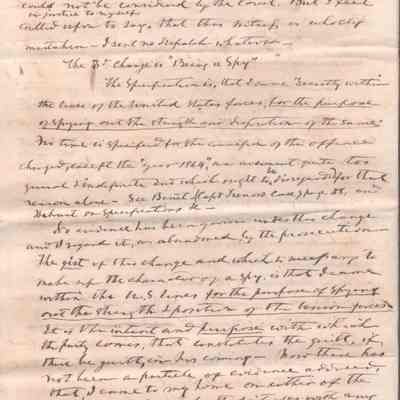 could not be considered by the Court. But I feel
in justice to myself
called upon to say, that this witness is wholly
mistaken - I sent no dispatch whatever -
The 3d Charge is "Being a Spy"
The Specification is, that I came "secretly within
the lines of the United States forces, for the purpose
of Spying out the strength and disposition of the same"
No time is specified for the commission of the offence
charged, except the "year 1864", an averment quite too
general & indefinite and which ought to be disregarded for that
reason alone - See Benét
Dehart on Specifications &c -
No evidence has been given under this charge
and I regard it, as abandoned by the prosecution -
The gist of this charge and which is necessary to
make up the character of a Spy, is that I came
within the U.S lines for the purpose of Spying
out the strength & position of the Union forces
It is the intent and purpose with which
the party comes, that constitutes the guilt, if
there be guilt, in his coming - Now there has
not been a particle of evidence adduced,
that, I came to my home on either of the
with any